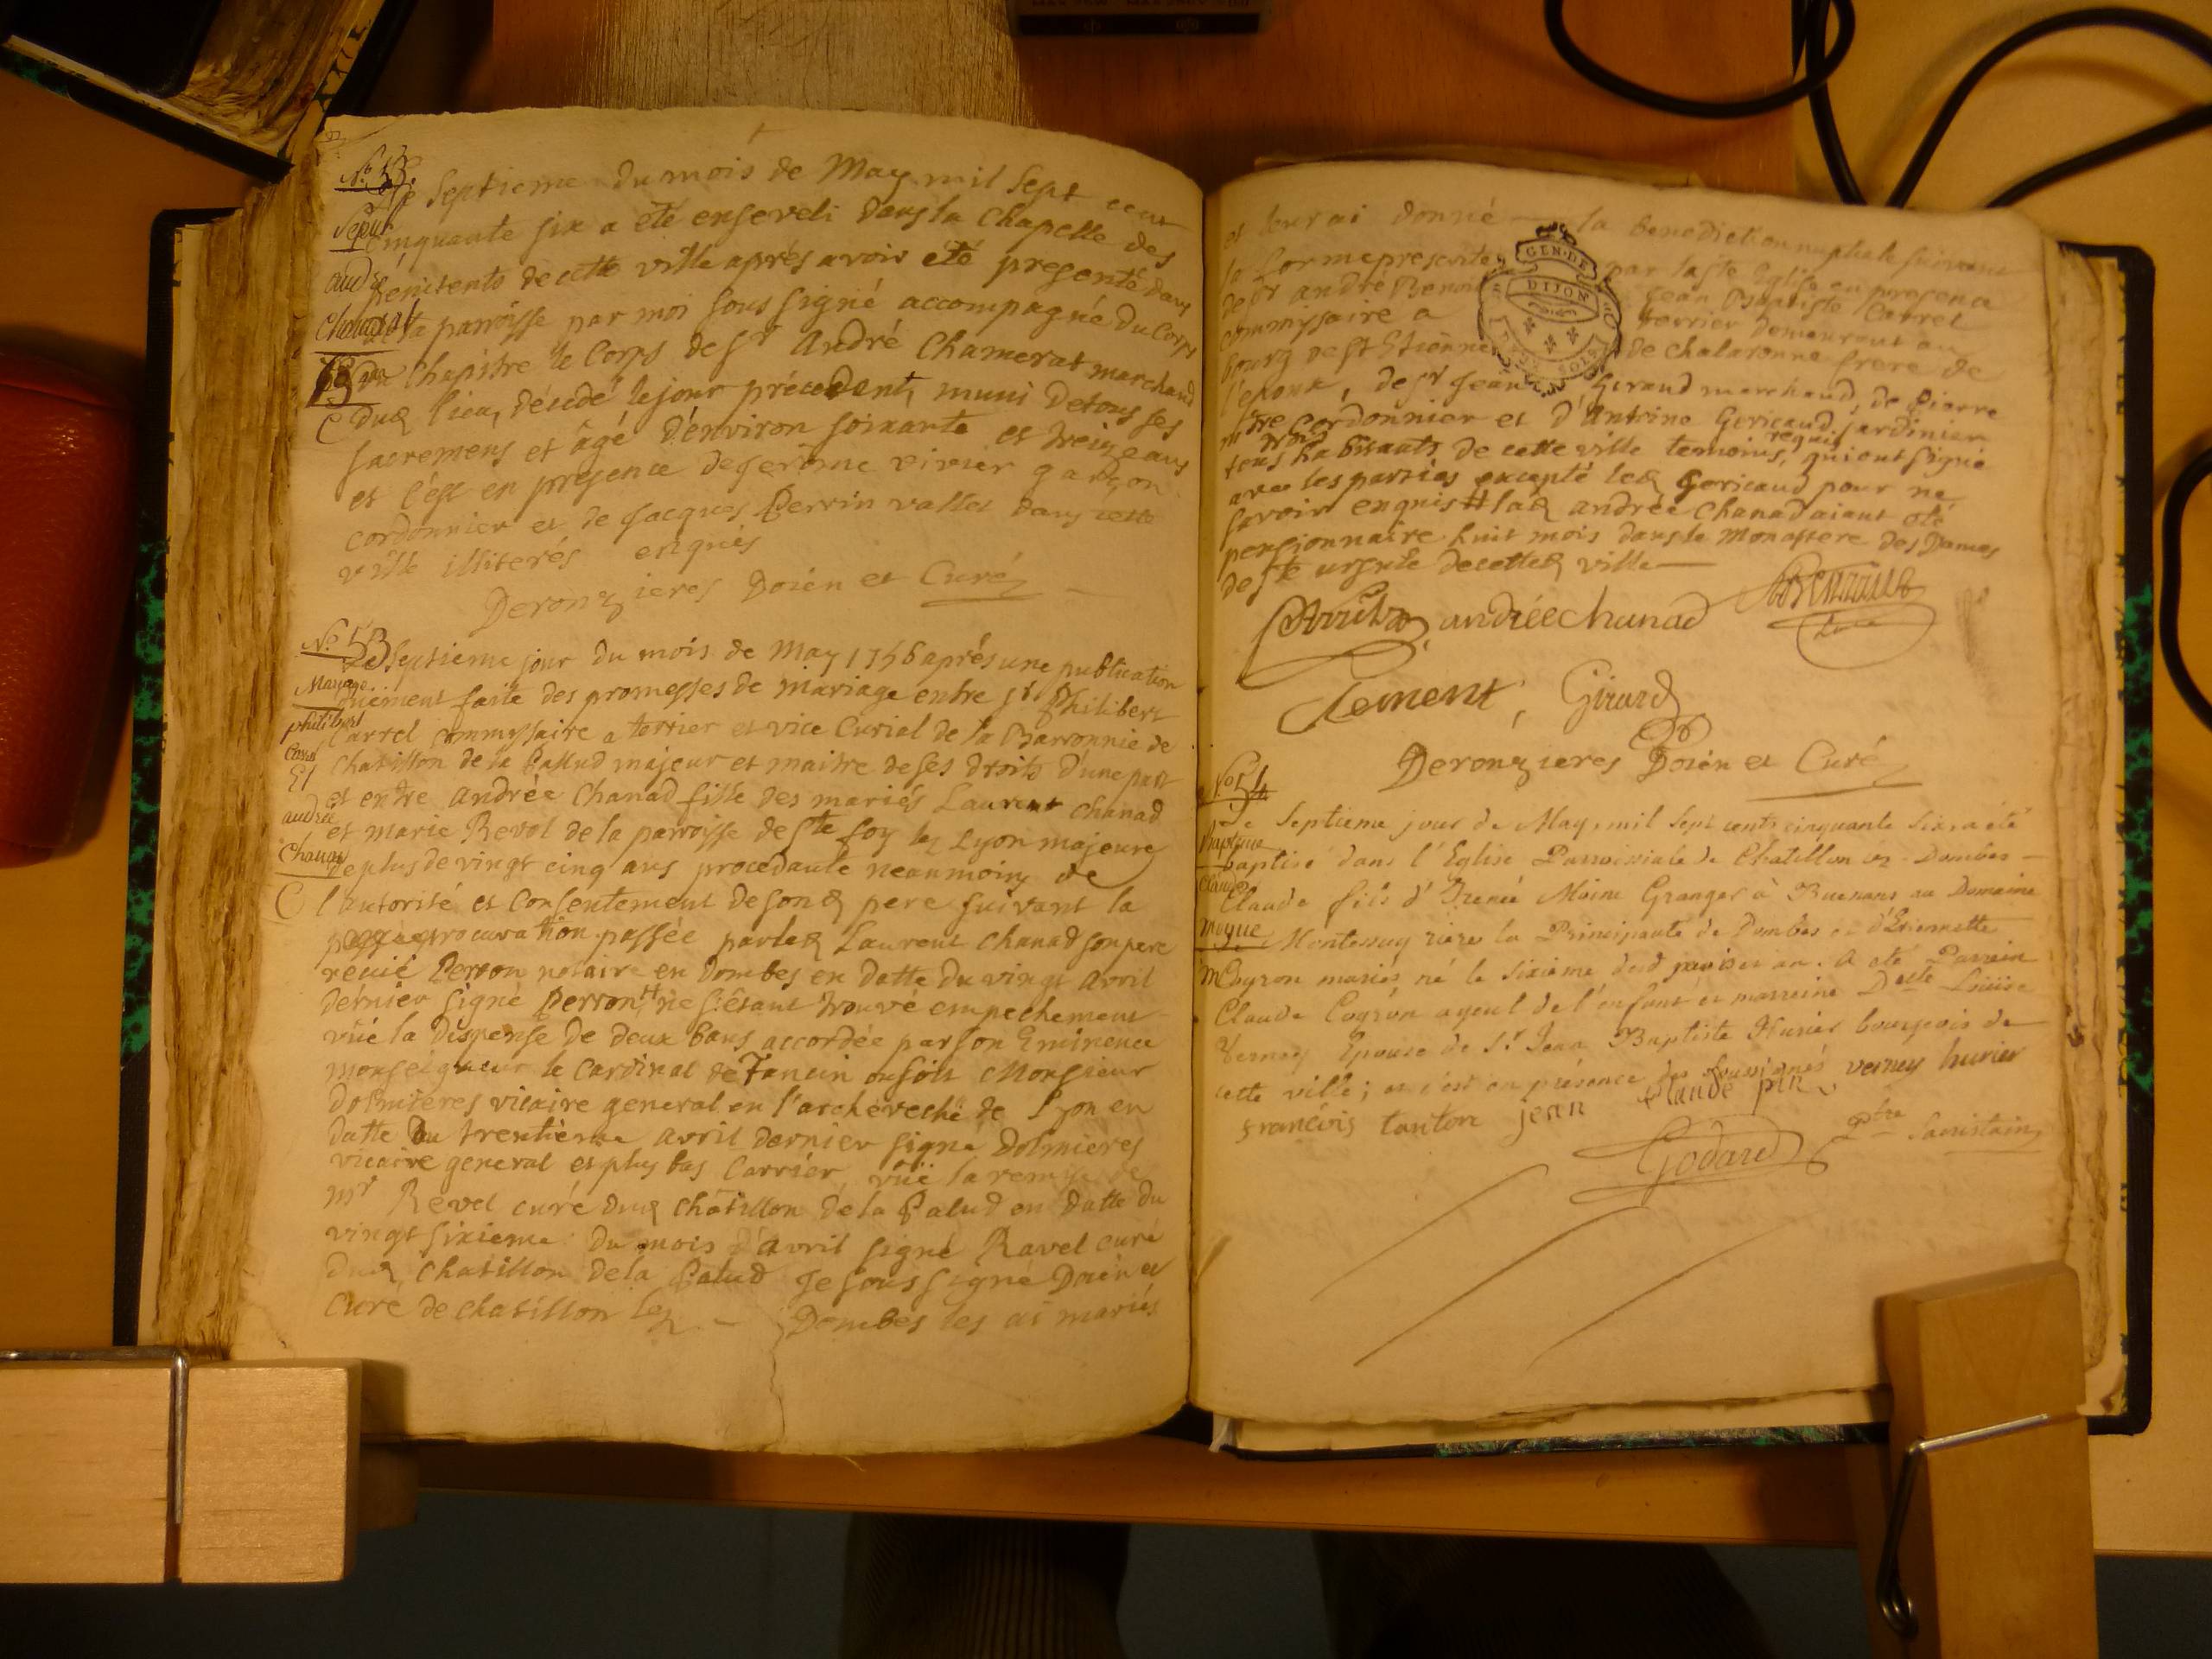 Sepult
andré
Chamerat
73 ans
Le Septieme du mois de May mil Sept cent
cinquante six a été enseveli dans la Chapelle des
penitents de cette ville aprés avoir été presenté dans
la parroisse par moi sous signé accompagné du Corps
du Chapitre le Corps de Sr André Chamerat marchand
dud lieu, décédé le jour précedent, muni de tous ses
sacremens et âgé d'environ soixante et treize ans
et c'est en presence de jerôme vivier garçon
cordonnier et de jacques Perrin vallet dans cette
ville illiterés enquis
Deronzieres Doien et Curé
No. 53
Mariage
philibert
Carrel
Et
andrée
Chanad
Le Septieme jour du mois de May 1756 aprés une publication
düement faite des promesses de mariage entre sr Philibert
Carrel commyssaire a terrier et vice Curial de la Barronnie de
Chatillon de la Pallud majeur et maitre de ses droits d'une part
et entre andrée Chanad fille des mariés Laurent Chanad
et marie Revol de la parroisse de Ste foy lez Lyon majeure
de plus de vingt cinq ans procedante neanmoins de
l'autorité et Consentement de sond pere suivant la
procuration passée par led Laurent Chanad son pere
reçüe Perron notaire en Dombes en datte du vingt avril
dérnier signé Perron # ne s'étant trouvé empechement
vüe la dispense de deux bans accordée par son Eminence
monseigneur le Cardinal de Tancin ou soit Monsieur
Dolmiéres vicaire general en l'archeveché de Lyon en
datte du trentiéme avril dernier signé Dolmieres
vicaire general et plus bas Carrier, vüe la remise de
mr Revel curé dud châtillon de la Palud en datte du
vingt sixieme du mois d'avril signé Ravel curé
dud Chatillon de la Palud je sous signé Doien et
Curé de chatillon lez Dombes les ai mariés
et leur ai donné la benediction nuptiale suivant
la forme prescrite par la ste Eglise en presence
de sr andré Jean Baptiste Carrel
commyssaire a terrier demeurant au
bourg de St Etienne de chalaronne frere de
l'epoux, de sr Jean Giraud marchand, de Pierre
mtre cordonnier et d'Antoine Gericaud jardinier
tous trois habitants de cette ville temoins requis, qui ont signé
avec les parties excepté led Gericaud pour ne
savoir enquis # lad andrée Chanad aiant été
pensionnaire huit mois dans le Monastere des Dames
de Ste ursule de cetted ville
GEN. DE
DIJON
andréechanad
Clement, Girard
Deronzieres Doien et Curé
No 54
Bapteme
Claude
moyne
Le Septieme jour de May, mil sept cents cinquante six, a été
baptisé dans l'Eglise Parroissiale de Chatillon lez Dombes
Claude fils d'Irenée Moine Granger à Buenans au Domaine
Montessuy riere la Principauté de Dombes et d'Etiennette
Cogron mariés, né le sixieme dud mois et an. A eté Parrein
Claude Cogron ayeul de l'enfant et marreine Delle Loüise
Verney Epouse de Sr Jean Baptiste Hurier bourgeois de
cette ville; et c'est en présence des soussignés verney hurier
françois tanton jean claude pin
Godard Ptre Sacristain